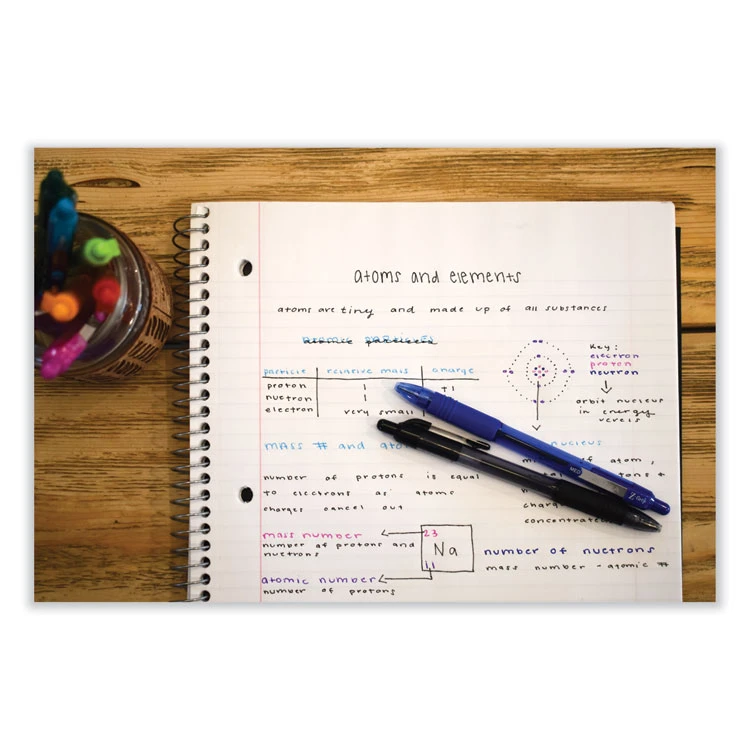 atoms and elements
atoms are tiny and made up of all substances
particle relative mass charge
proton 1 +1
nuetron 1
electron very small
Key:
electron
proton
neutron
orbit nucleus
in energy
MASS # and
nucleus
of atom,
number of protons is equal
to electrons as atoms
charges cancel out
concentrated
mass number
number of protons and
nuetrons
23
Na
11
atomic number
number of protons
number of nuetrons
mass number - atomic #
MED
Z-Grip